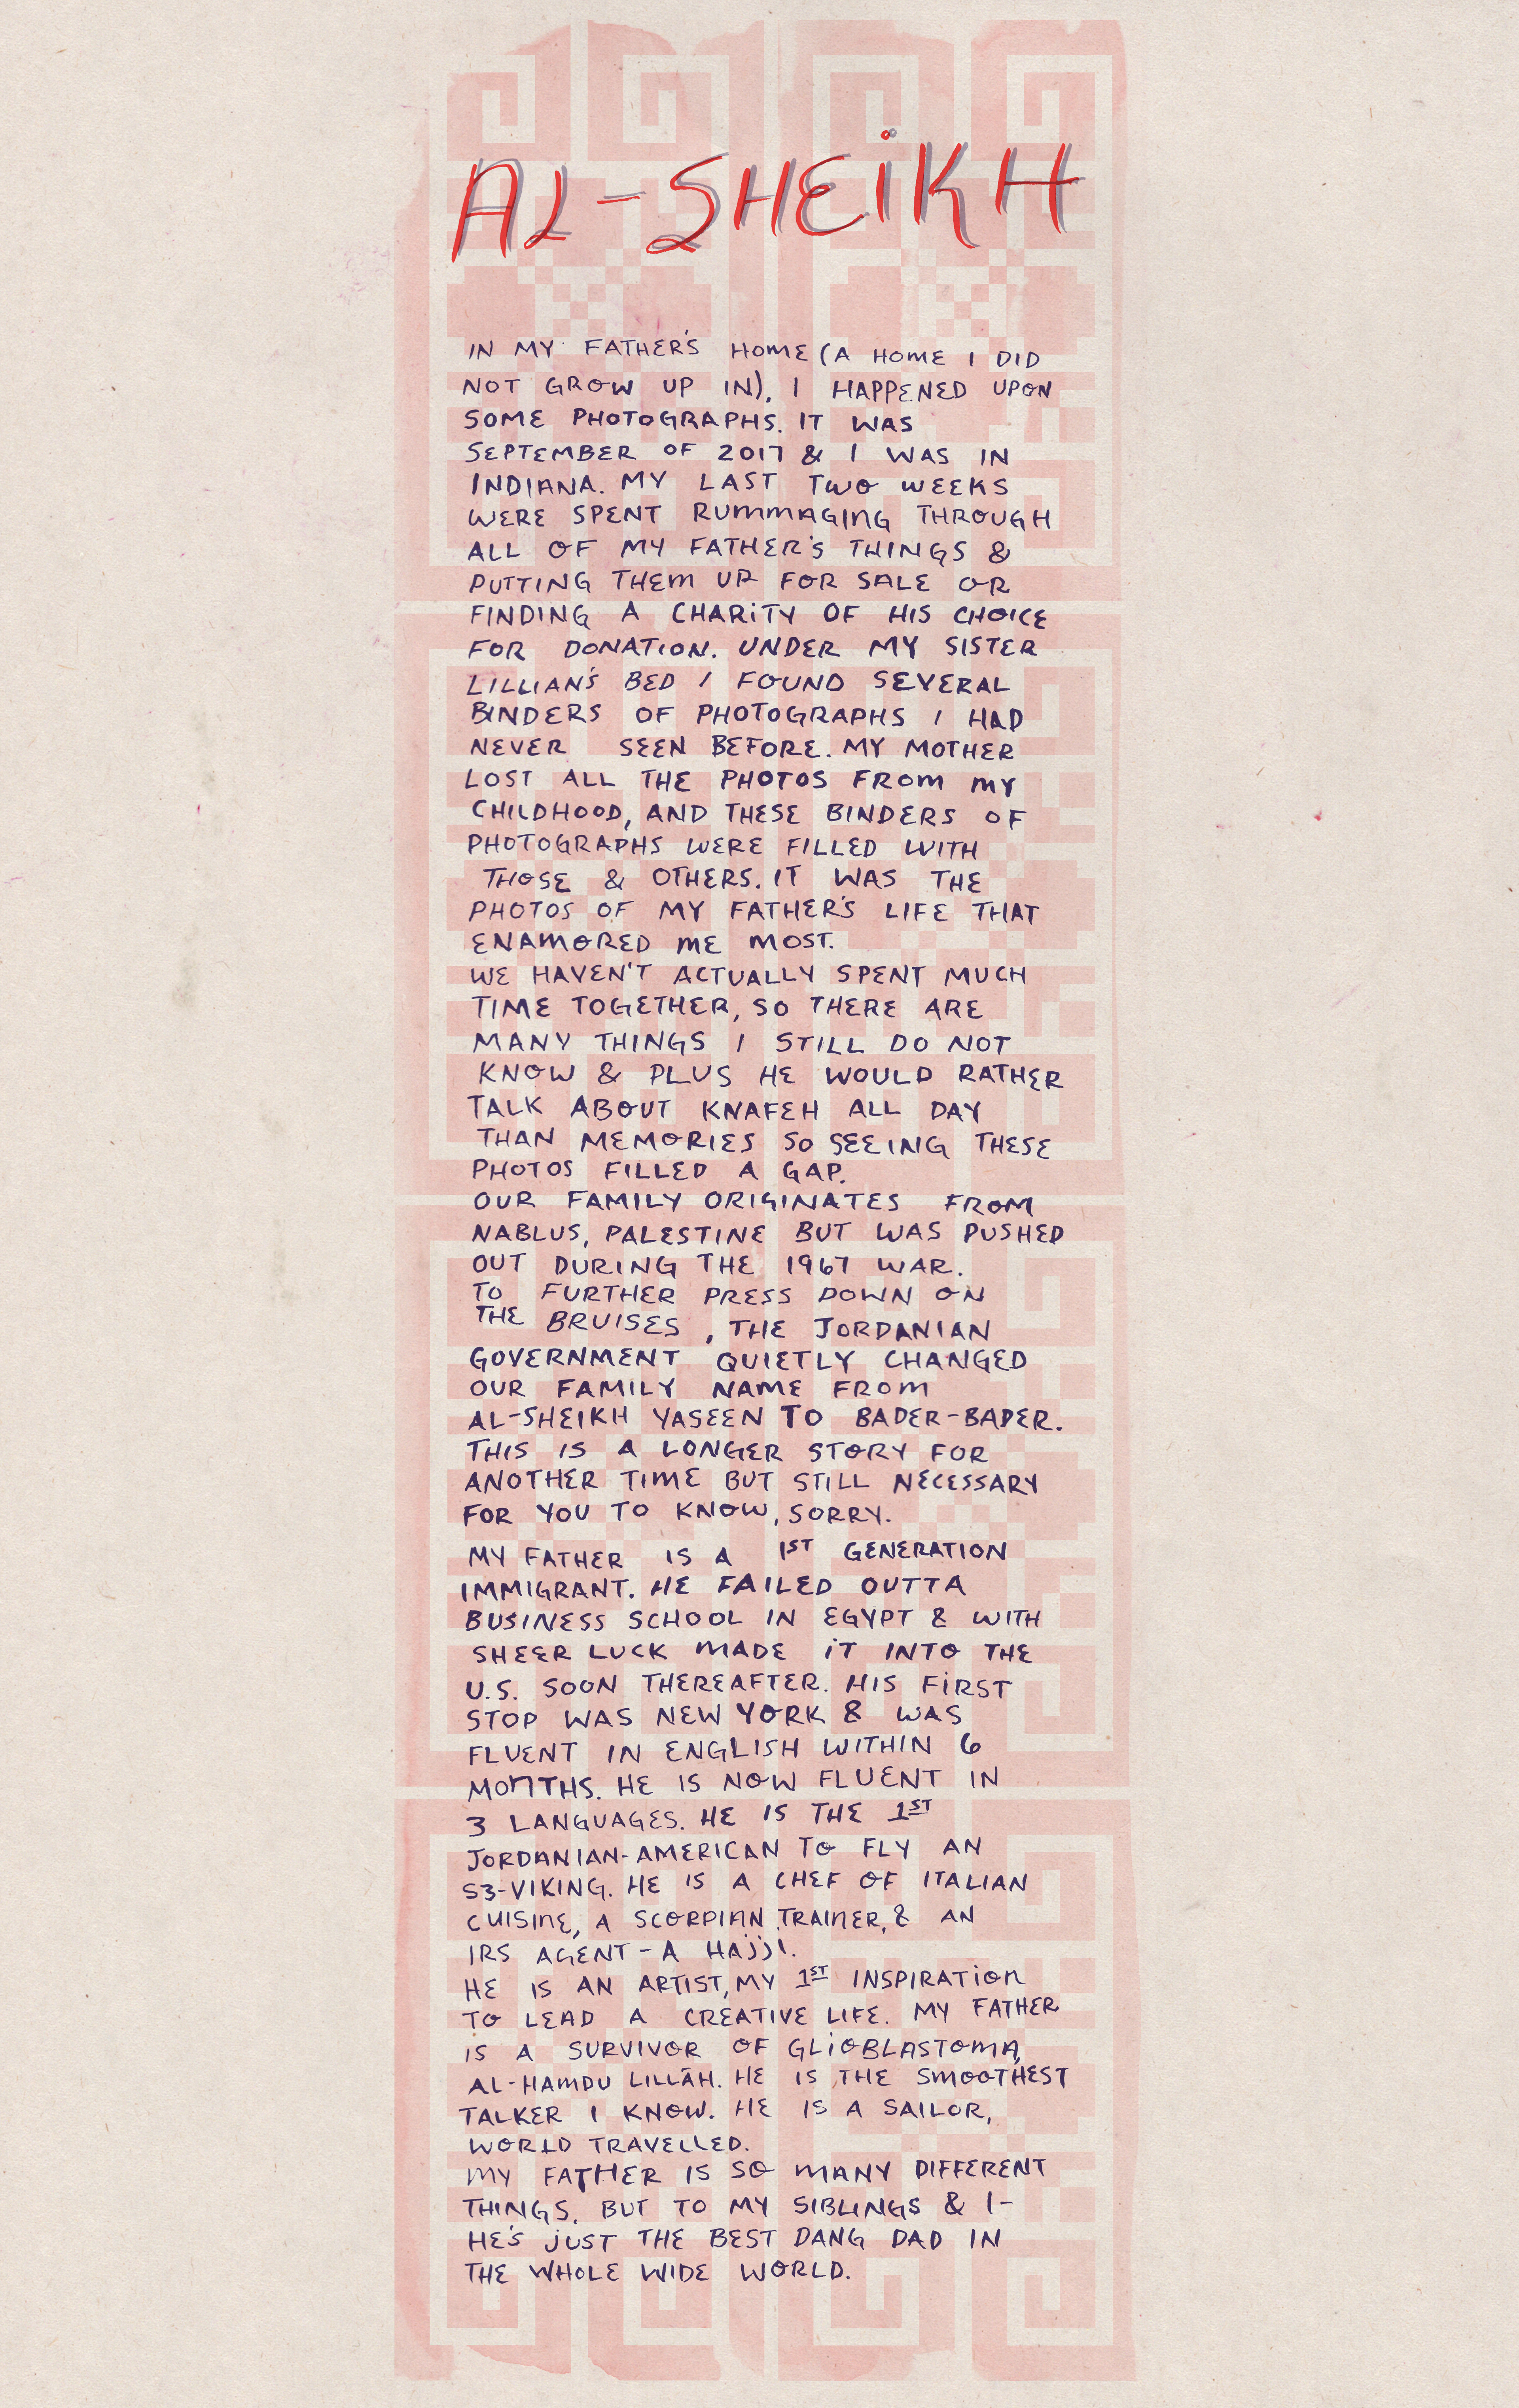 AL-SHEiKH
IN MY FATHER'S HOME (A HOME I DID
NOT GROW UP IN), I HAPPENED UPON
SOME PHOTOGRAPHS. IT WAS
SEPTEMBER OF 2017 & I WAS IN
INDIANA. MY LAST TWO WEEKS
WERE SPENT RUMMAGING THROUGH
ALL OF MY FATHER'S THINGS &
PUTTING THEM UP FOR SALE OR
FINDING A CHARITY OF HIS CHOICE
FOR DONATION. UNDER MY SISTER
LILLIAN'S BED I FOUND SEVERAL
BINDERS OF PHOTOGRAPHS I HAD
NEVER SEEN BEFORE. MY MOTHER
LOST ALL THE PHOTOS FROM MY
CHILDHOOD, AND THESE BINDERS OF
PHOTOGRAPHS WERE FILLED WITH
THOSE & OTHERS. IT WAS THE
PHOTOS OF MY FATHER'S LIFE THAT
ENAMORED ME MOST.
WE HAVEN'T ACTUALLY SPENT MUCH
TIME TOGETHER, SO THERE ARE
MANY THINGS I STILL DO NOT
KNOW & PLUS HE WOULD RATHER
TALK ABOUT KNAFEH ALL DAY
THAN MEMORIES SO SEEING THESE
PHOTOS FILLED A GAP.
OUR FAMILY ORIGINATES FROM
NABLUS, PALESTINE BUT WAS PUSHED
OUT DURING THE 1967 WAR.
TO FURTHER PRESS DOWN ON
THE BRUISES, THE JORDANIAN
GOVERNMENT QUIETLY CHANGED
OUR FAMILY NAME FROM
AL-SHEIKH YASEEN TO BADER-BADER.
THIS IS A LONGER STORY FOR
ANOTHER TIME BUT STILL NECESSARY
FOR YOU TO KNOW, SORRY.
MY FATHER IS A 1ST GENERATION
IMMIGRANT. HE FAILED OUTTA
BUSINESS SCHOOL IN EGYPT & WITH
SHEER LUCK MADE IT INTO THE
U.S. SOON THEREAFTER. HIS FIRST
STOP WAS NEW YORK & WAS
FLUENT IN ENGLISH WITHIN 6
MONTHS. HE IS NOW FLUENT IN
3 LANGUAGES. HE IS THE 1ST
JORDANIAN-AMERICAN TO FLY AN
S3-VIKING. HE IS A CHEF OF ITALIAN
CUISINE, A SCORPIAN TRAINER, & AN
IRS AGENT - A HAjji.
HE IS AN ARTIST, MY 1ST INSPIRATION
TO LEAD A CREATIVE LIFE. MY FATHER
IS A SURVIVOR OF GLIOBLASTOMA,
AL-HAMDU LILLĀH. HE IS THE SMOOTHEST
TALKER I KNOW. HE IS A SAILOR,
WORLD TRAVELLED.
MY FATHER IS SO MANY DIFFERENT
THINGS. BUT TO MY SIBLINGS & I-
HE'S JUST THE BEST DANG DAD IN
THE WHOLE WIDE WORLD.